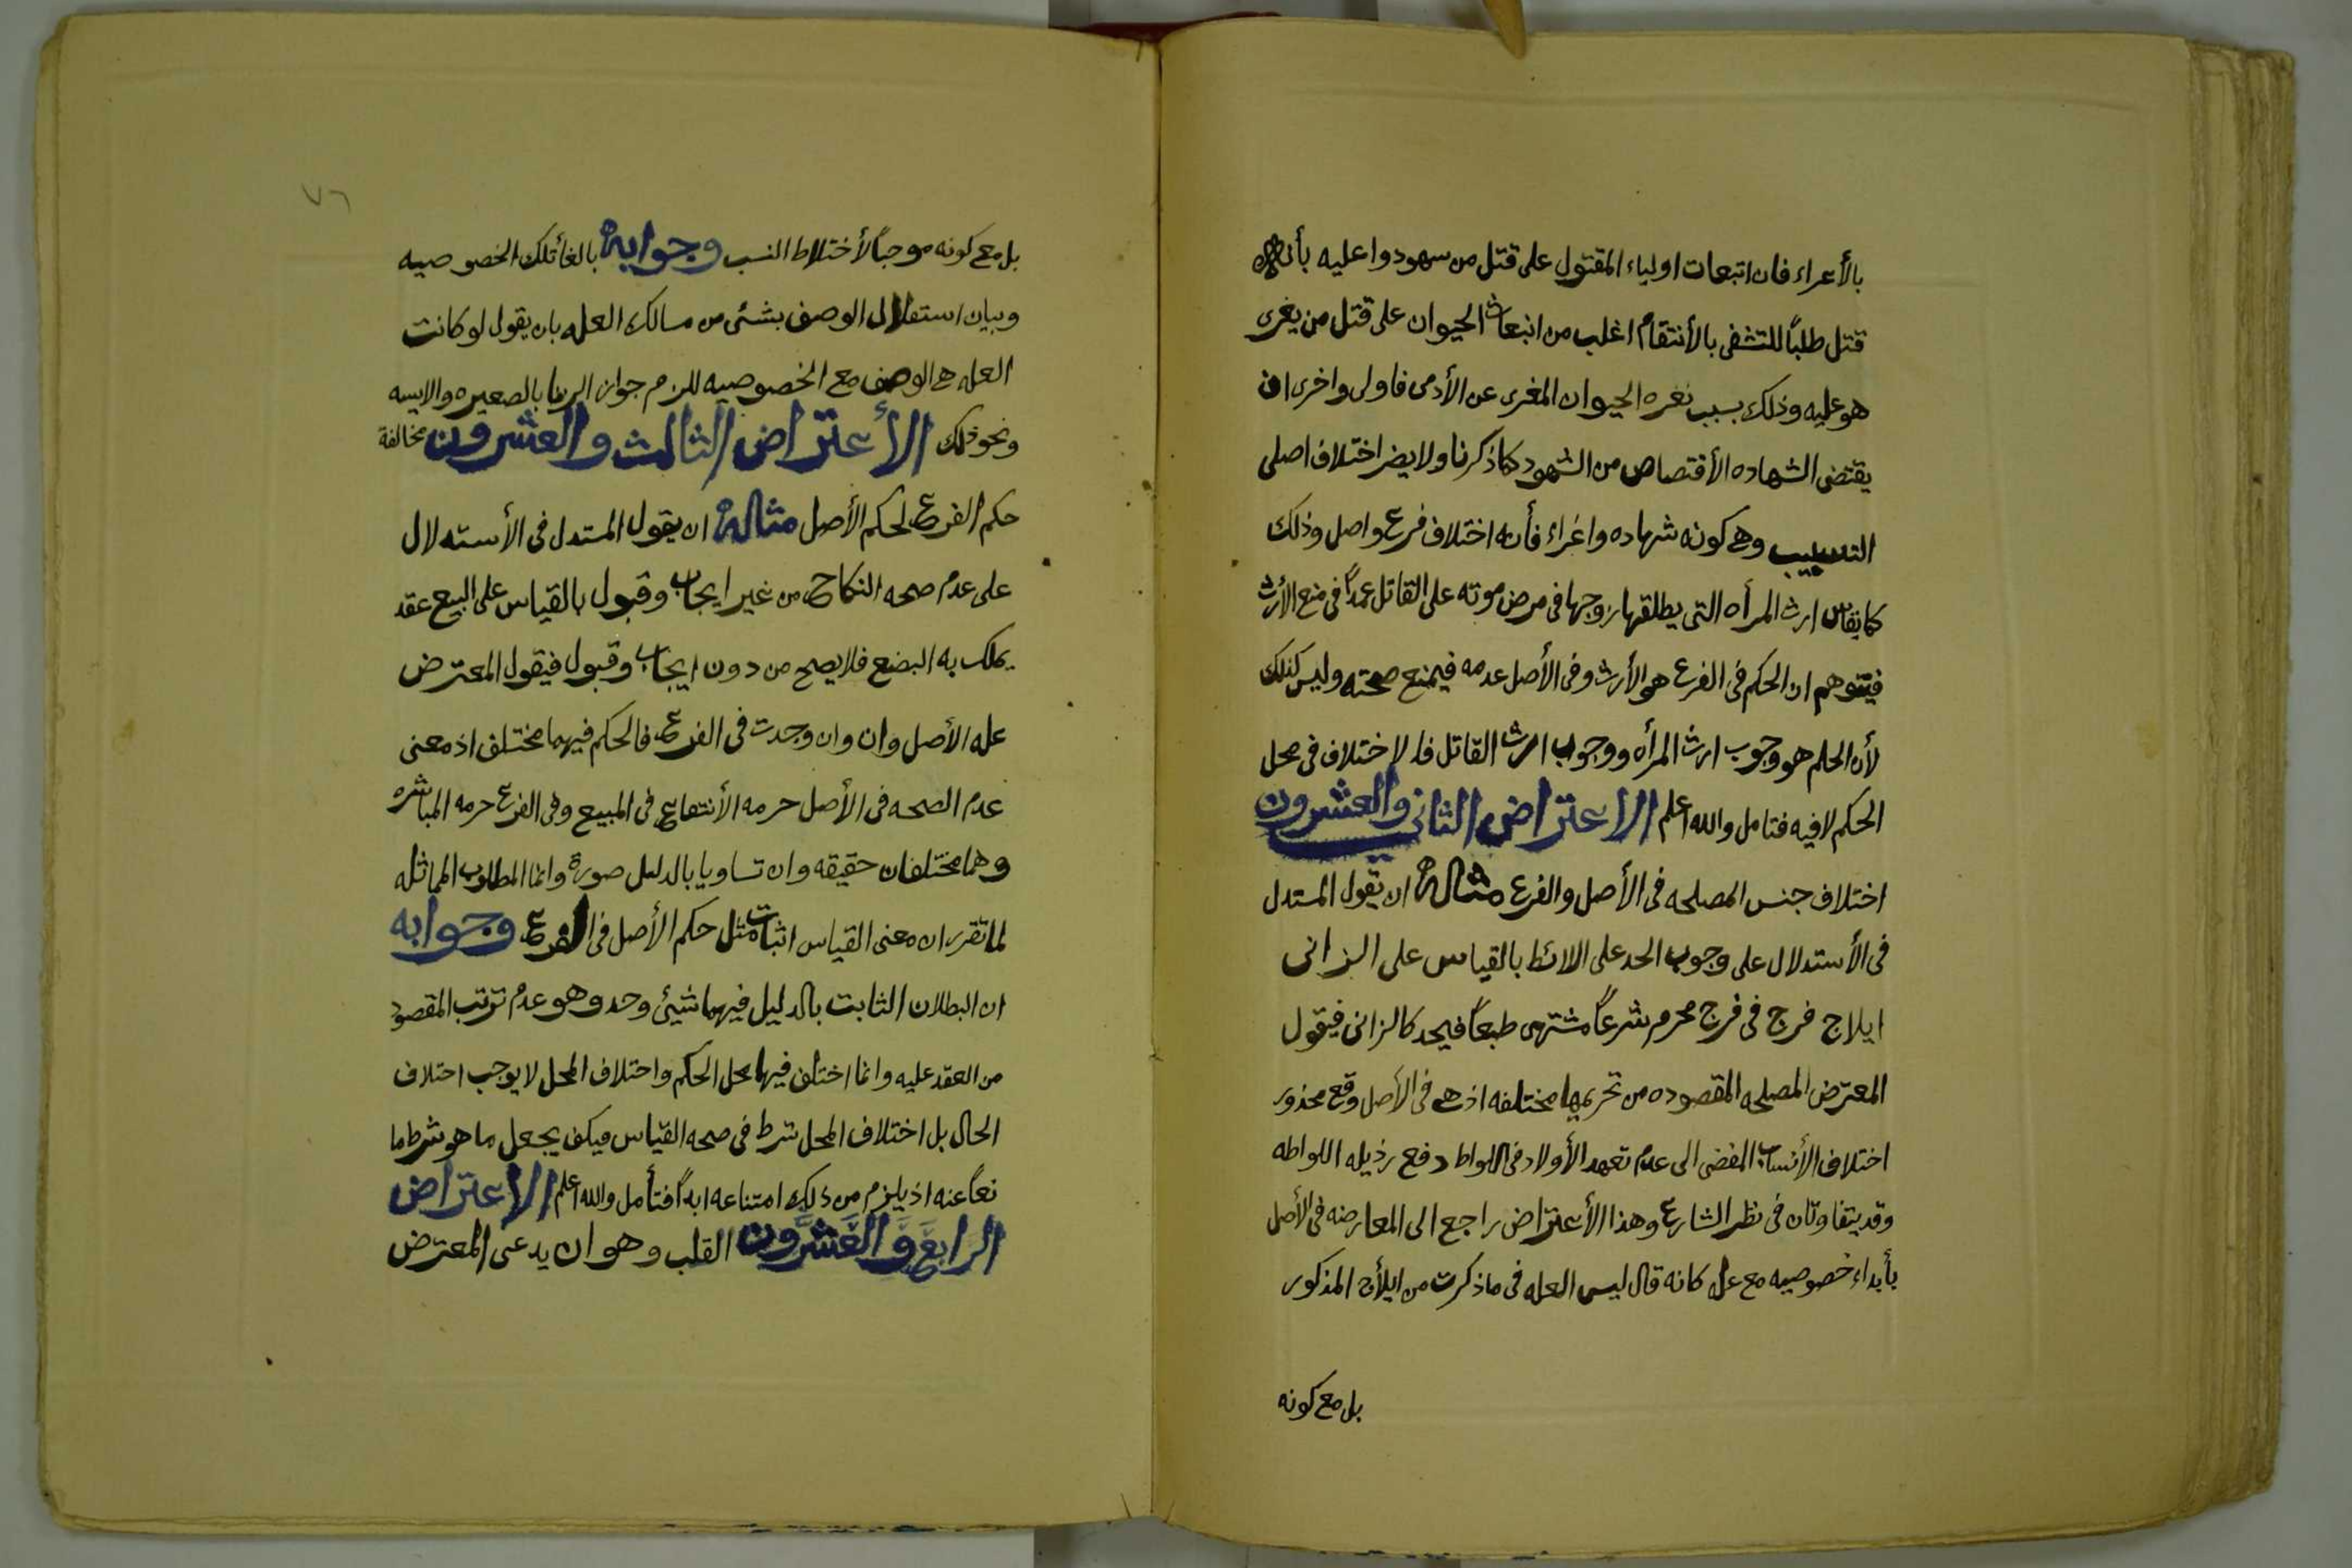 بالأعراء فان اتبعات اولياء المقتول على قتل من سهودوا عليه بأنه
قتل طلبًا للتشفى بالأنتقام اغلب من انبعاث الحيوان على قتل من يغرى
هو عليه وذلك بسبب نفره الحيوان المغرى عن الأدمى فاولى واخرى ان
يقتضى الشهاده الأقتصاص من الشهود كما ذكرنا ولا يضر اختلاف اصلى
التسبيب وهى كونه شهاده واغراء فأنه اختلاف فرع واصل وذلك
كما يقاس ارث المرأه التى يطلقها زوجها فى مرض موته على القاتل عمدًا فى منع الأرث
فيتوهم ان الحكم فى الفرع هو الأرث وفى الأصل عدمه فيمنع صحته وليس كذلك
لأن الحلم هو وجوب ارث المرأه ووجوب ارث القاتل فالاختلاف فى محل
الحكم لا فيه فتامل والله اعلم الاعتراض الثانى والعشرون
اختلاف جنس المصلحه فى الأصل والفرع مثاله ان يقول المستدل
فى الأستدلال على وجوب الحد على اللائط بالقياس على الزانى
ايلاج فرج فى فرج محرم شرعًا مشتهى طبعًا فيحد كالزانى فيقول
المعترض المصلحه المقصوده من تحريمها مختلفه اذ هى فى الأصل وقع محذور
اختلاف الأنساب المفضى الى عدم تعهد الأولاد فى اللواط دفع رذيله اللواطه
وقد يتفاوتان فى نظر الشارع وهذا الأعتراض راجع الى المعارضه فى الأصل
بأبداء خصوصيه مع عله كانه قال ليس العله فى ما ذكرت من ايلاج المذكور
بل مع كونه
٧٦
بل مع كونه موجبًا لأختلاط النسب وجوابه بالغأ تلك الخصوصيه
وبيان استقلال الوصف بشئى من مسالك العله بان يقول لو كانت
العله هى الوصف مع الخصوصيه للزم جواز الزنا بالصعيره والايسه
ونحو ذلك الأعتراض الثالث والعشرون مخالفة
حكم الفرع لحكم الأصل مثاله ان يقول المستدل فى الأستدلال
على عدم صحه النكاح من غير ايجاب وقبول بالقياس على البيع عقد
يملك به البضع فلا يصح من دون ايجاب وقبول فيقول المعترض
عله الأصل وان وان وجدت فى الفرع فالحكم فيهما مختلف اذ معنى
عدم الصحه فى الأصل حرمه الأنتفاع فى المبيع وفى الفرع حرمه المباشره
وهما مختلفان حقيقه وان تساويا بالدليل صورة وانما المطلوب المماثله
لما تقرر ان معنى القياس اثبات مثل حكم الأصل فى الفرع وجوابه
ان البطلان الثابت بالدليل فيهما شيئى وحد وهو عدم ترتب المقصود
من العقد عليه وانما اختلف فيها محل الحكم واحتلاف المحل لا يوجب احتلاف
الحال بل اختلاف المحل شرط فى صحه القياس فيكف يجعل ما هو شرط ما
نعًا عنه اذ يلزم من ذلك امتناعه ابدًا فتأمل والله اعلم الاعتراض
الرابع والعشرون القلب وهو ان يدعى المعترض